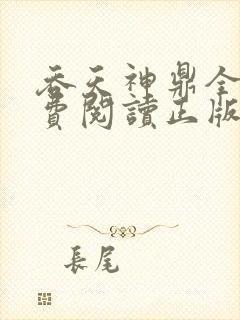 吞天神鼎全
費閱讀正版
長尾